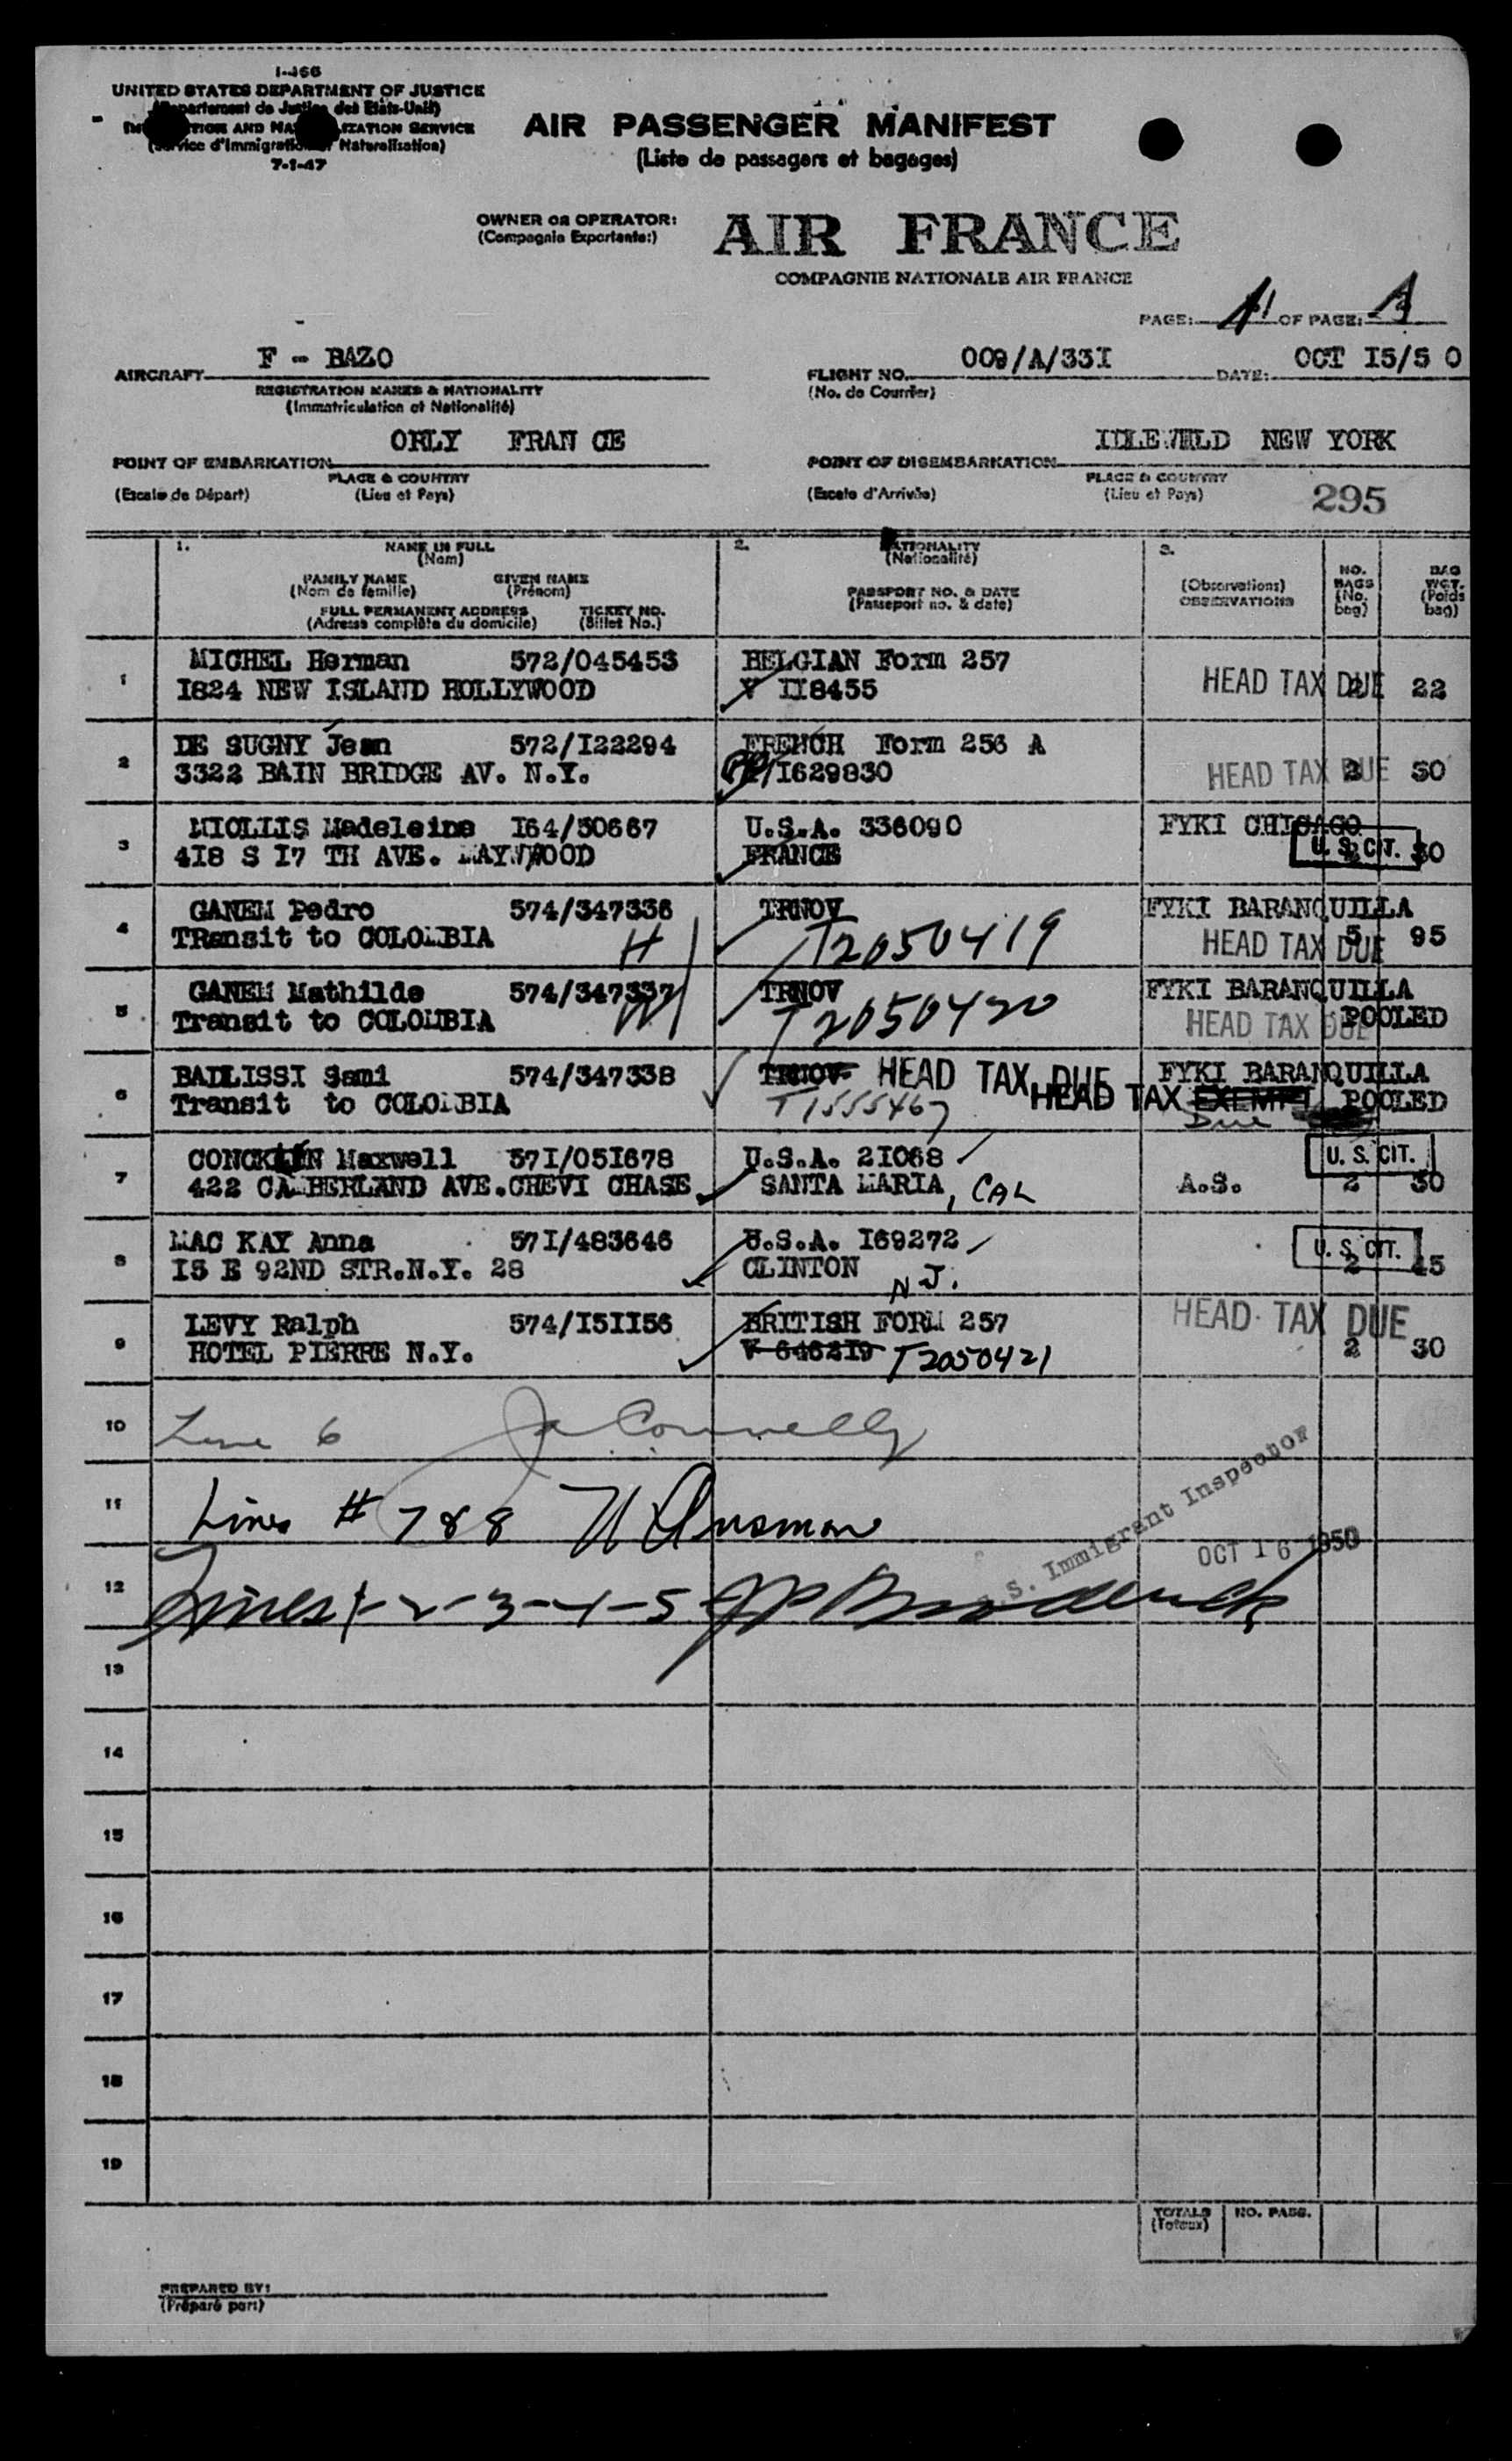 I-466
UNITED STATES DEPARTMENT OF JUSTICE
(Departement de Justice des Etats-Unis)
IMMIGRATION AND NATURALIZATION SERVICE
(Service d'Immigration et Naturalisation)
7-1-47
AIR PASSENGER MANIFEST
(Liste de passagers et bagages)
OWNER OR OPERATOR:
(Compagnie Exportante:)
AIR FRANCE
COMPAGNIE NATIONALE AIR FRANCE
PAGE: OF PAGE:
AIRCRAFT F - BAZO
REGISTRATION MARKS & NATIONALITY
(Immatriculation et Nationalité)
FLIGHT NO. 009/A/33I DATE: OCT I5/5 0
(No. de Courrier)
POINT OF EMBARKATION ORLY FRAN CE
PLACE & COUNTRY
(Escale de Départ) (Lieu et Pays)
POINT OF DISEMBARKATION IDLEWILD NEW YORK
PLACE & COUNTRY
(Escale d'Arrivée) (Lieu et Pays)
295
1. NAME IN FULL
(Nom)
FAMILY NAME GIVEN NAME
(Nom de famille) (Prénom)
FULL PERMANENT ADDRESS TICKET NO.
(Adresse complète du domicile) (Billet No.)
2. NATIONALITY
(Nationalité)
PASSPORT NO. & DATE
(Passeport no. & date)
3.
(Observations)
OBSERVATIONS
NO. BAGS (No. bag)
BAG WGT. (Poids bag)
1 MICHEL Herman 572/045453 BELGIAN Form 257
I824 NEW ISLAND HOLLYWOOD V II8455 HEAD TAX DUE 2 22
2 DE SUGNY Jean 572/I22294 FRENCH Form 256 A
3322 BAIN BRIDGE AV. N.Y. I629830 HEAD TAX DUE 2 50
3 MIOLLIS Madeleine I64/50667 U.S.A. 336090 FYKI CHICAGO
418 S I7 TH AVE. MAYWOOD FRANCE U. S. CIT. 30
4 GANEM Pedro 574/347336 TRNOV FYKI BARANQUILLA
TRansit to COLOMBIA H T2050419 HEAD TAX DUE 5 95
5 GANEM Mathilde 574/347337 TRNOV FYKI BARANQUILLA
Transit to COLOMBIA W T2050420 HEAD TAX DUE POOLED
6 BADLISSI Sami 574/347338 TRNOV HEAD TAX DUE FYKI BARANQUILLA
Transit to COLOMBIA T1555467 HEAD TAX EXEMPT POOLED
Due
7 CONCKLIN Maxwell 57I/05I678 U.S.A. 2I068 U. S. CIT.
422 CAMBERLAND AVE.CHEVI CHASE SANTA MARIA, CAL A.S. 2 30
8 MAC KAY Anna 57I/483646 U.S.A. I69272 U. S. CIT.
I5 E 92ND STR.N.Y. 28 CLINTON N J. 2 45
9 LEVY Ralph 574/I5II56 BRITISH FORM 257 HEAD TAX DUE
HOTEL PIERRE N.Y. V 646219 T2050421 2 30
10 Line 6 J Connelly
11 Lines # 7 & 8
U. S. Immigrant Inspector
OCT 16 1950
12 Lines 1-2-3-4-5 JP Broderick
13
14
15
16
17
18
19
TOTALS NO. PASS.
(Totaux)
PREPARED BY:
(Préparé par:)